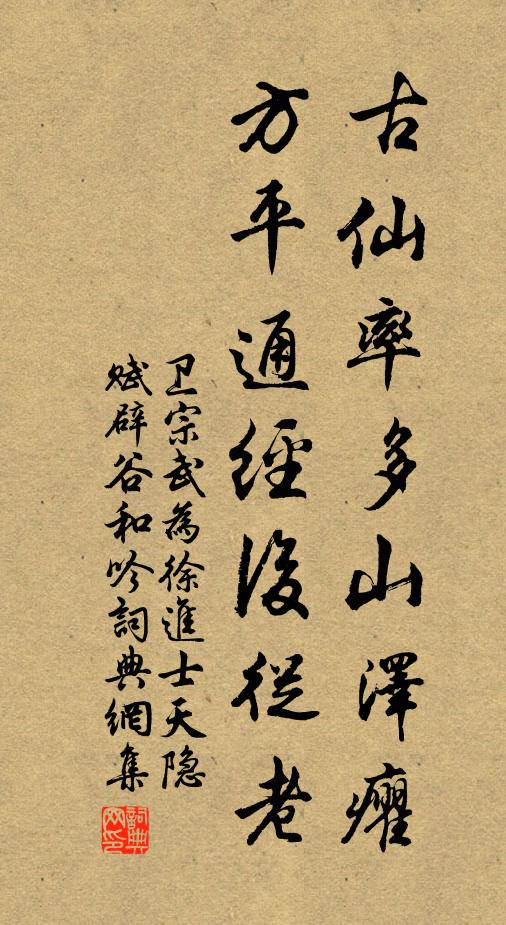 古仙率多山澤癯
方平通經後從老
卫宗武為徐進士天隐
賦辟谷和吟詞典網集
詞典网印